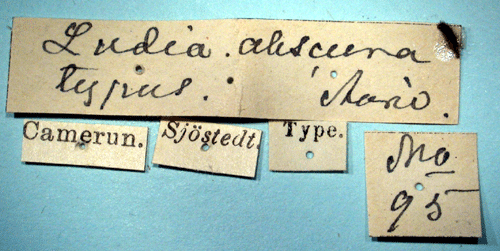 Ludia. obscura
typus. Auriv.
Camerun.
Sjöstedt.
Type.
No
95